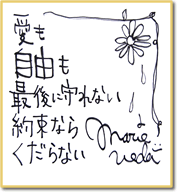 愛も
自由も
最後に守れない
約束なら
くだらない
Marie
Ueda